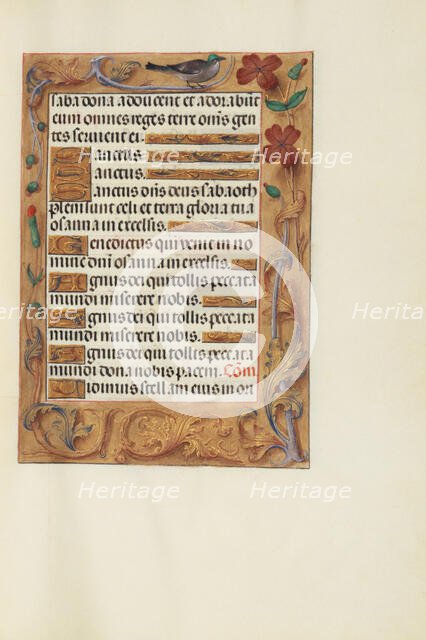 saba dona adducent et adorabūt
eum omnes reges terre om̄s gen
tes servient ei.
Sanctus.
Sanctus.
Sanctus dn̄s deus sabaoth
pleni sunt celi et terra gloria tua
osanna in excelsis.
Benedictus qui venit in no
mine dn̄i osanna in excelsis.
Agnus dei qui tollis peccata
mundi miserere nobis.
Agnus dei qui tollis peccata
mundi miserere nobis.
Agnus dei qui tollis peccata
mundi dona nobis pacem. Com̄
Vidimus stellam eius in ori
Heritage Heritage Heritage
Heritage Heritage
Heritage Heritage Heritage